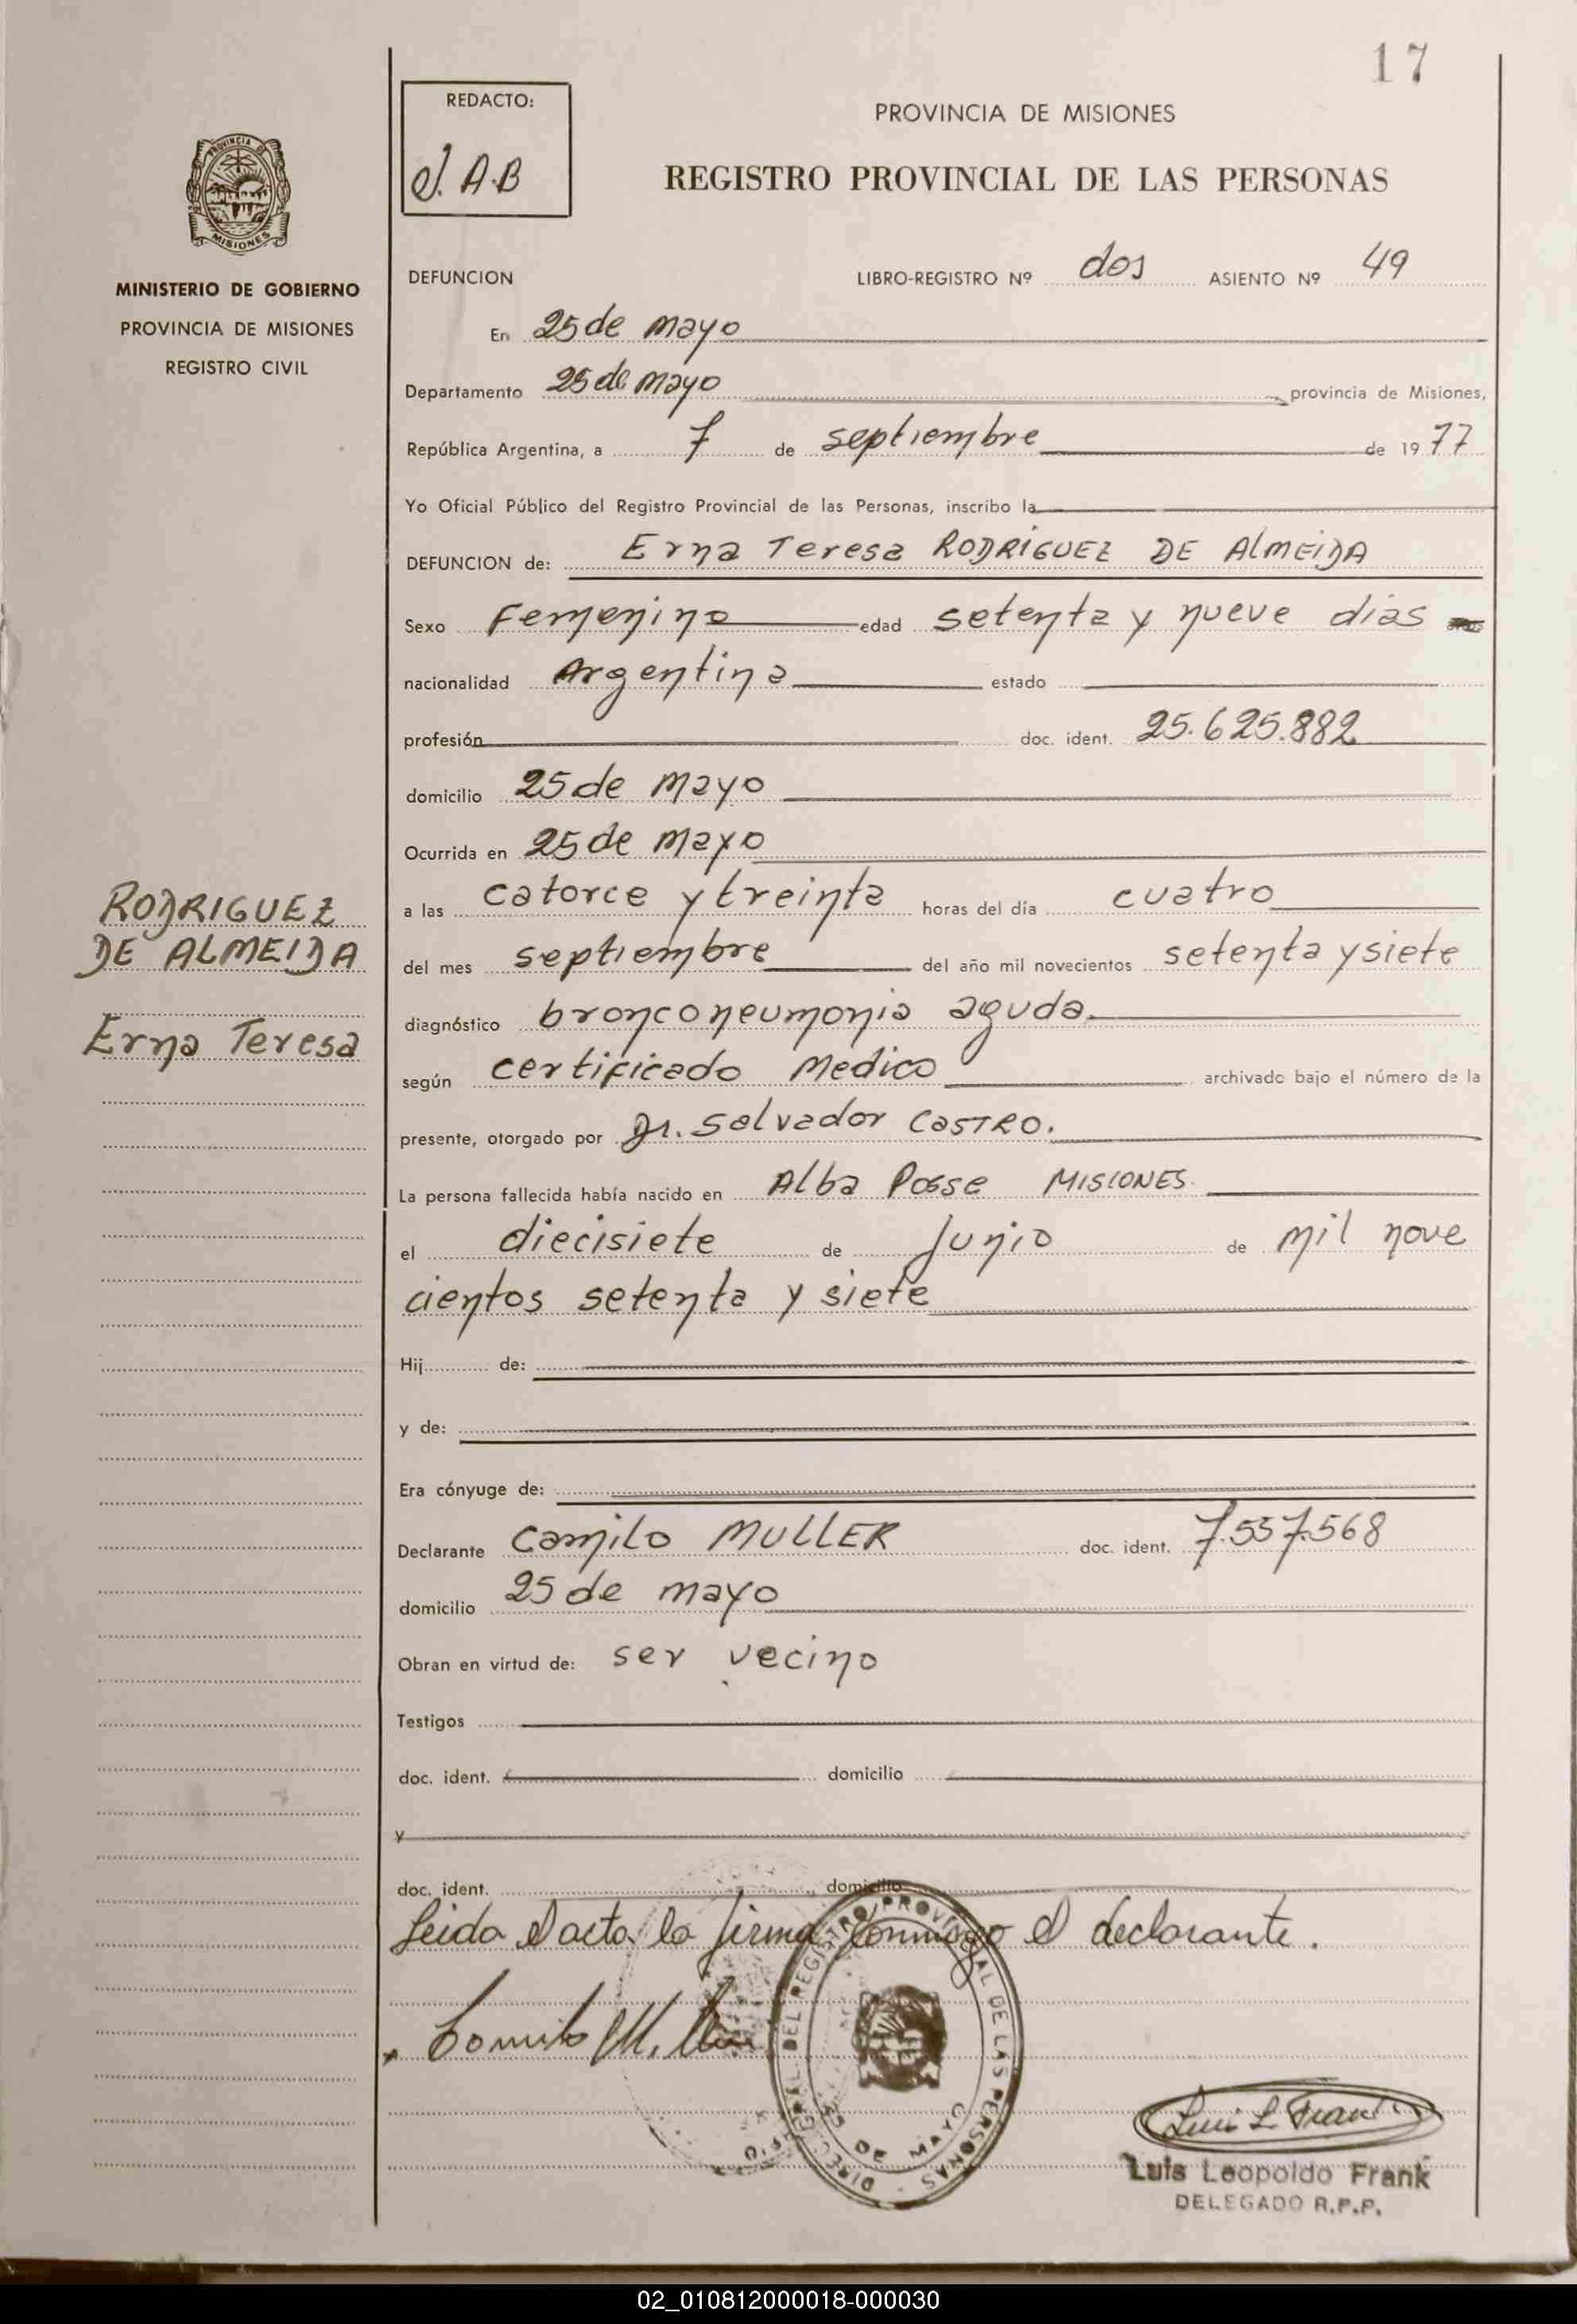 17
REDACTO:
J. A.B
PROVINCIA DE MISIONES
REGISTRO PROVINCIAL DE LAS PERSONAS
PROVINCIA DE
MISIONES
MINISTERIO DE GOBIERNO
PROVINCIA DE MISIONES
REGISTRO CIVIL
DEFUNCION LIBRO-REGISTRO Nº dos ASIENTO Nº 49
En 25 de mayo
Departamento 25 de mayo provincia de Misiones,
República Argentina, a 7 de septiembre de 1977
Yo Oficial Público del Registro Provincial de las Personas, inscribo la
DEFUNCION de: Erna Teresa RODRIGUEZ DE ALMEIDA
Sexo Femenino edad setenta y nueve dias
nacionalidad Argentina estado
profesión doc. ident. 25.625.882
domicilio 25 de mayo
Ocurrida en 25 de mayo
a las catorce y treinta horas del día cuatro
del mes septiembre del año mil novecientos setenta y siete
diagnóstico bronconeumonia aguda.
según certificado Medico archivado bajo el número de la
presente, otorgado por Dr. Salvador CASTRO.
La persona fallecida había nacido en Alba Posse MISIONES
el diecisiete de Junio de mil nove
cientos setenta y siete
Hij de:
y de:
Era cónyuge de:
Declarante Camilo MULLER doc. ident. 7.557.568
domicilio 25 de mayo
Obran en virtud de: ser vecino
Testigos
doc. ident. domicilio
y
doc. ident. domicilio
Leida el acta, la firma conmigo el declarante.
RODRIGUEZ
DE ALMEIDA
Erna Teresa
DIREC. GRAL. DEL REGISTRO PROVINCIAL DE LAS PERSONAS
25 DE MAYO
Luis L Frank
Luis Leopoldo Frank
DELEGADO R.P.P.
02_010812000018-000030